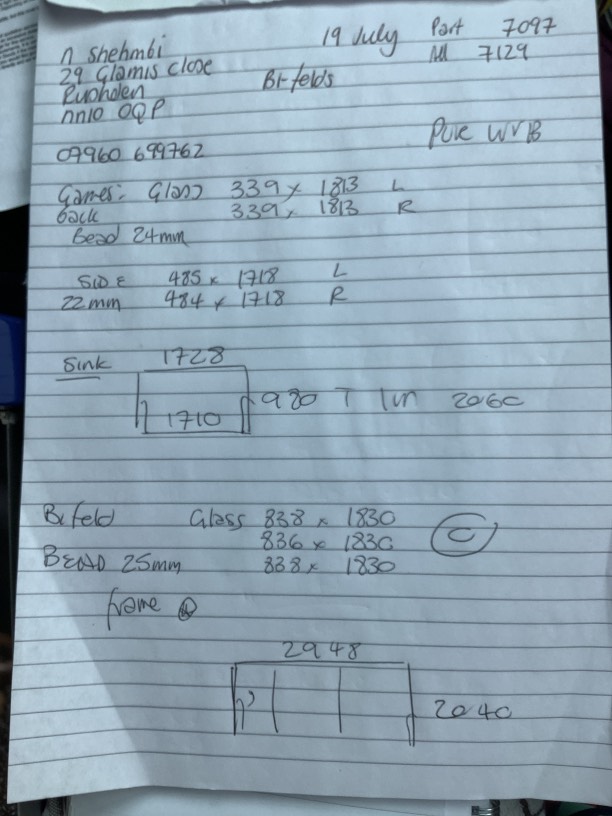 n Shehmbi 19 July Part 7097
29 Glamis Close All 7129
Rushden Bi-folds
nn10 0QP
Pure WVB
07960 699762
Games: Glass 339 x 1813 L
back 339 x 1813 R
Bead 24mm
SIDE 485 x 1718 L
22mm 484 x 1718 R
Sink 1728
980 T 2060
1710
Bifold Glass 838 x 1830
836 x 1830 C
BEAD 25mm 838 x 1830
frame
2948
2040